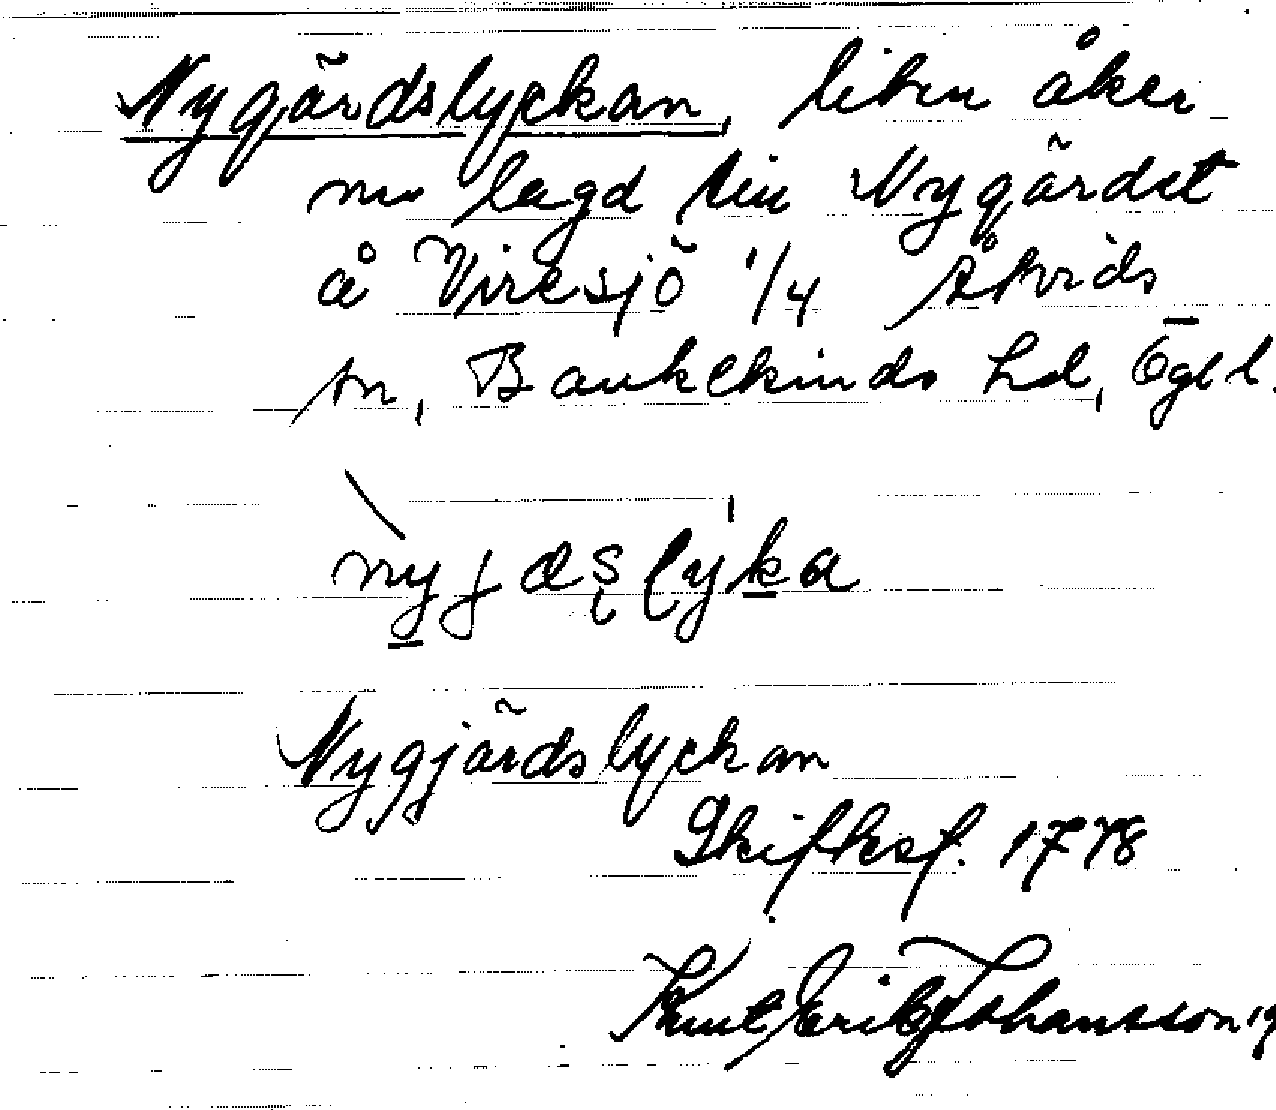 Nygärdslyckan, liten åker
nu lagd till Nygärdet
å Viresjö 1/4 Åtvids
sn, Bankekinds hd, Ögtl.
nyjæsļyka
Nygjärdslyckan
Skifksf. 1778
Knut Erik Johansson 19